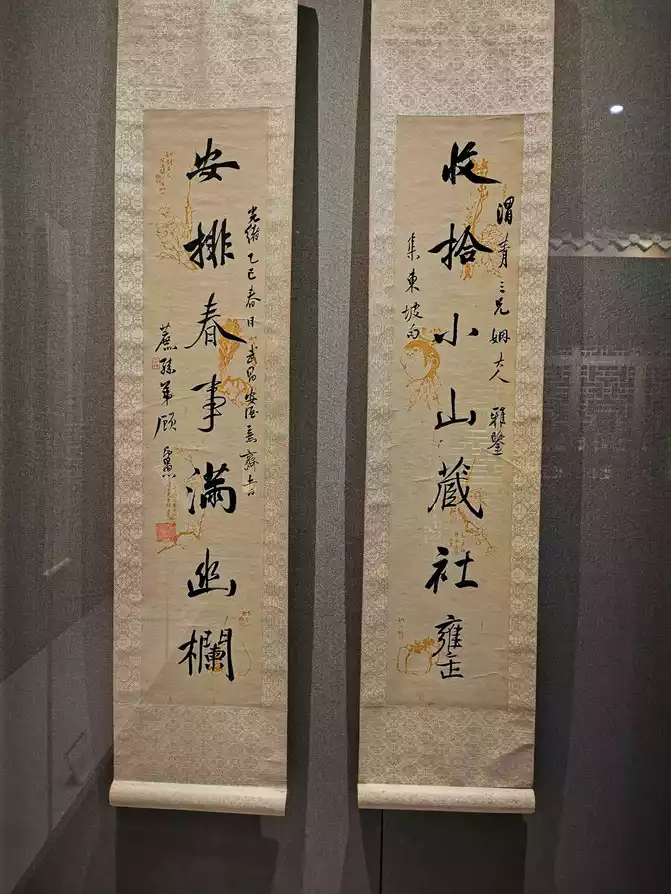 渭青三兄姻大人雅鑒
收拾小山藏社罋
集東坡句
光緒乙巳春日武昌齋書
安排春事滿幽欄
蔗孫弟顧印愚